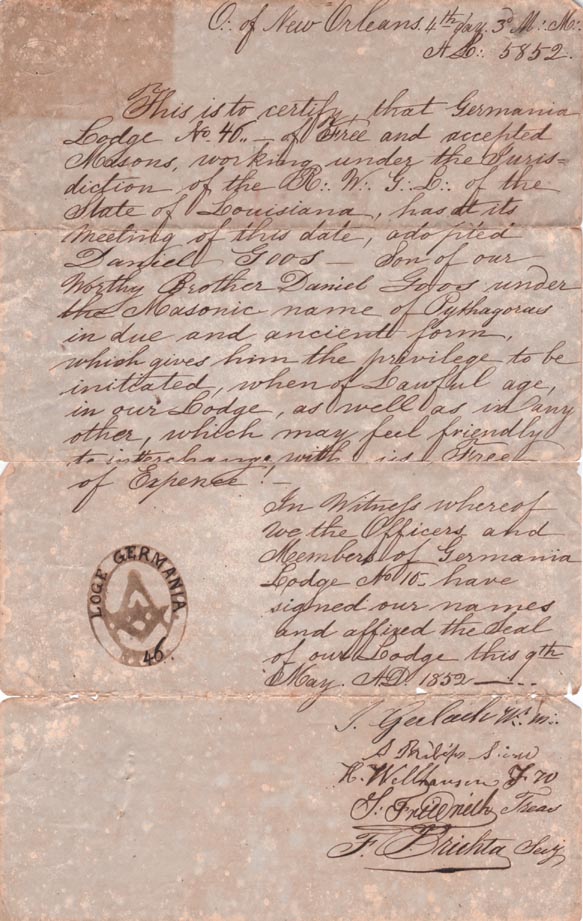 O∴ of New Orleans. 4th day. 3d M∴ M∴
A L∴ 5852.
This is to certify that Germania
Lodge No. 46. — of Free and accepted
Masons, working under the Juris=
diction of the R∴ W∴ G∴ L∴ of the
State of Louisiana, has at its
meeting of this date, adopted
Daniel Goos — Son of our
Worthy Brother Daniel Goos under
the Masonic name of Pythagoras
in due and ancient form,
which gives him the privilege to be
initiated, when of Lawful age,
in our Lodge, as well as in any
other, which may feel friendly
to interchange, with us Free
of Expence! —
In Witness whereof
we the Officers and
Members of Germania
Lodge No 46 have
signed our names
and affixed the Seal
of our Lodge this 9th
May. A.D. 1852 —
LOGE GERMANIA.
46.
J. Gerlach W. M∴
S Philips
H. Wellhausen J.
Treas
F. Brichta Secy